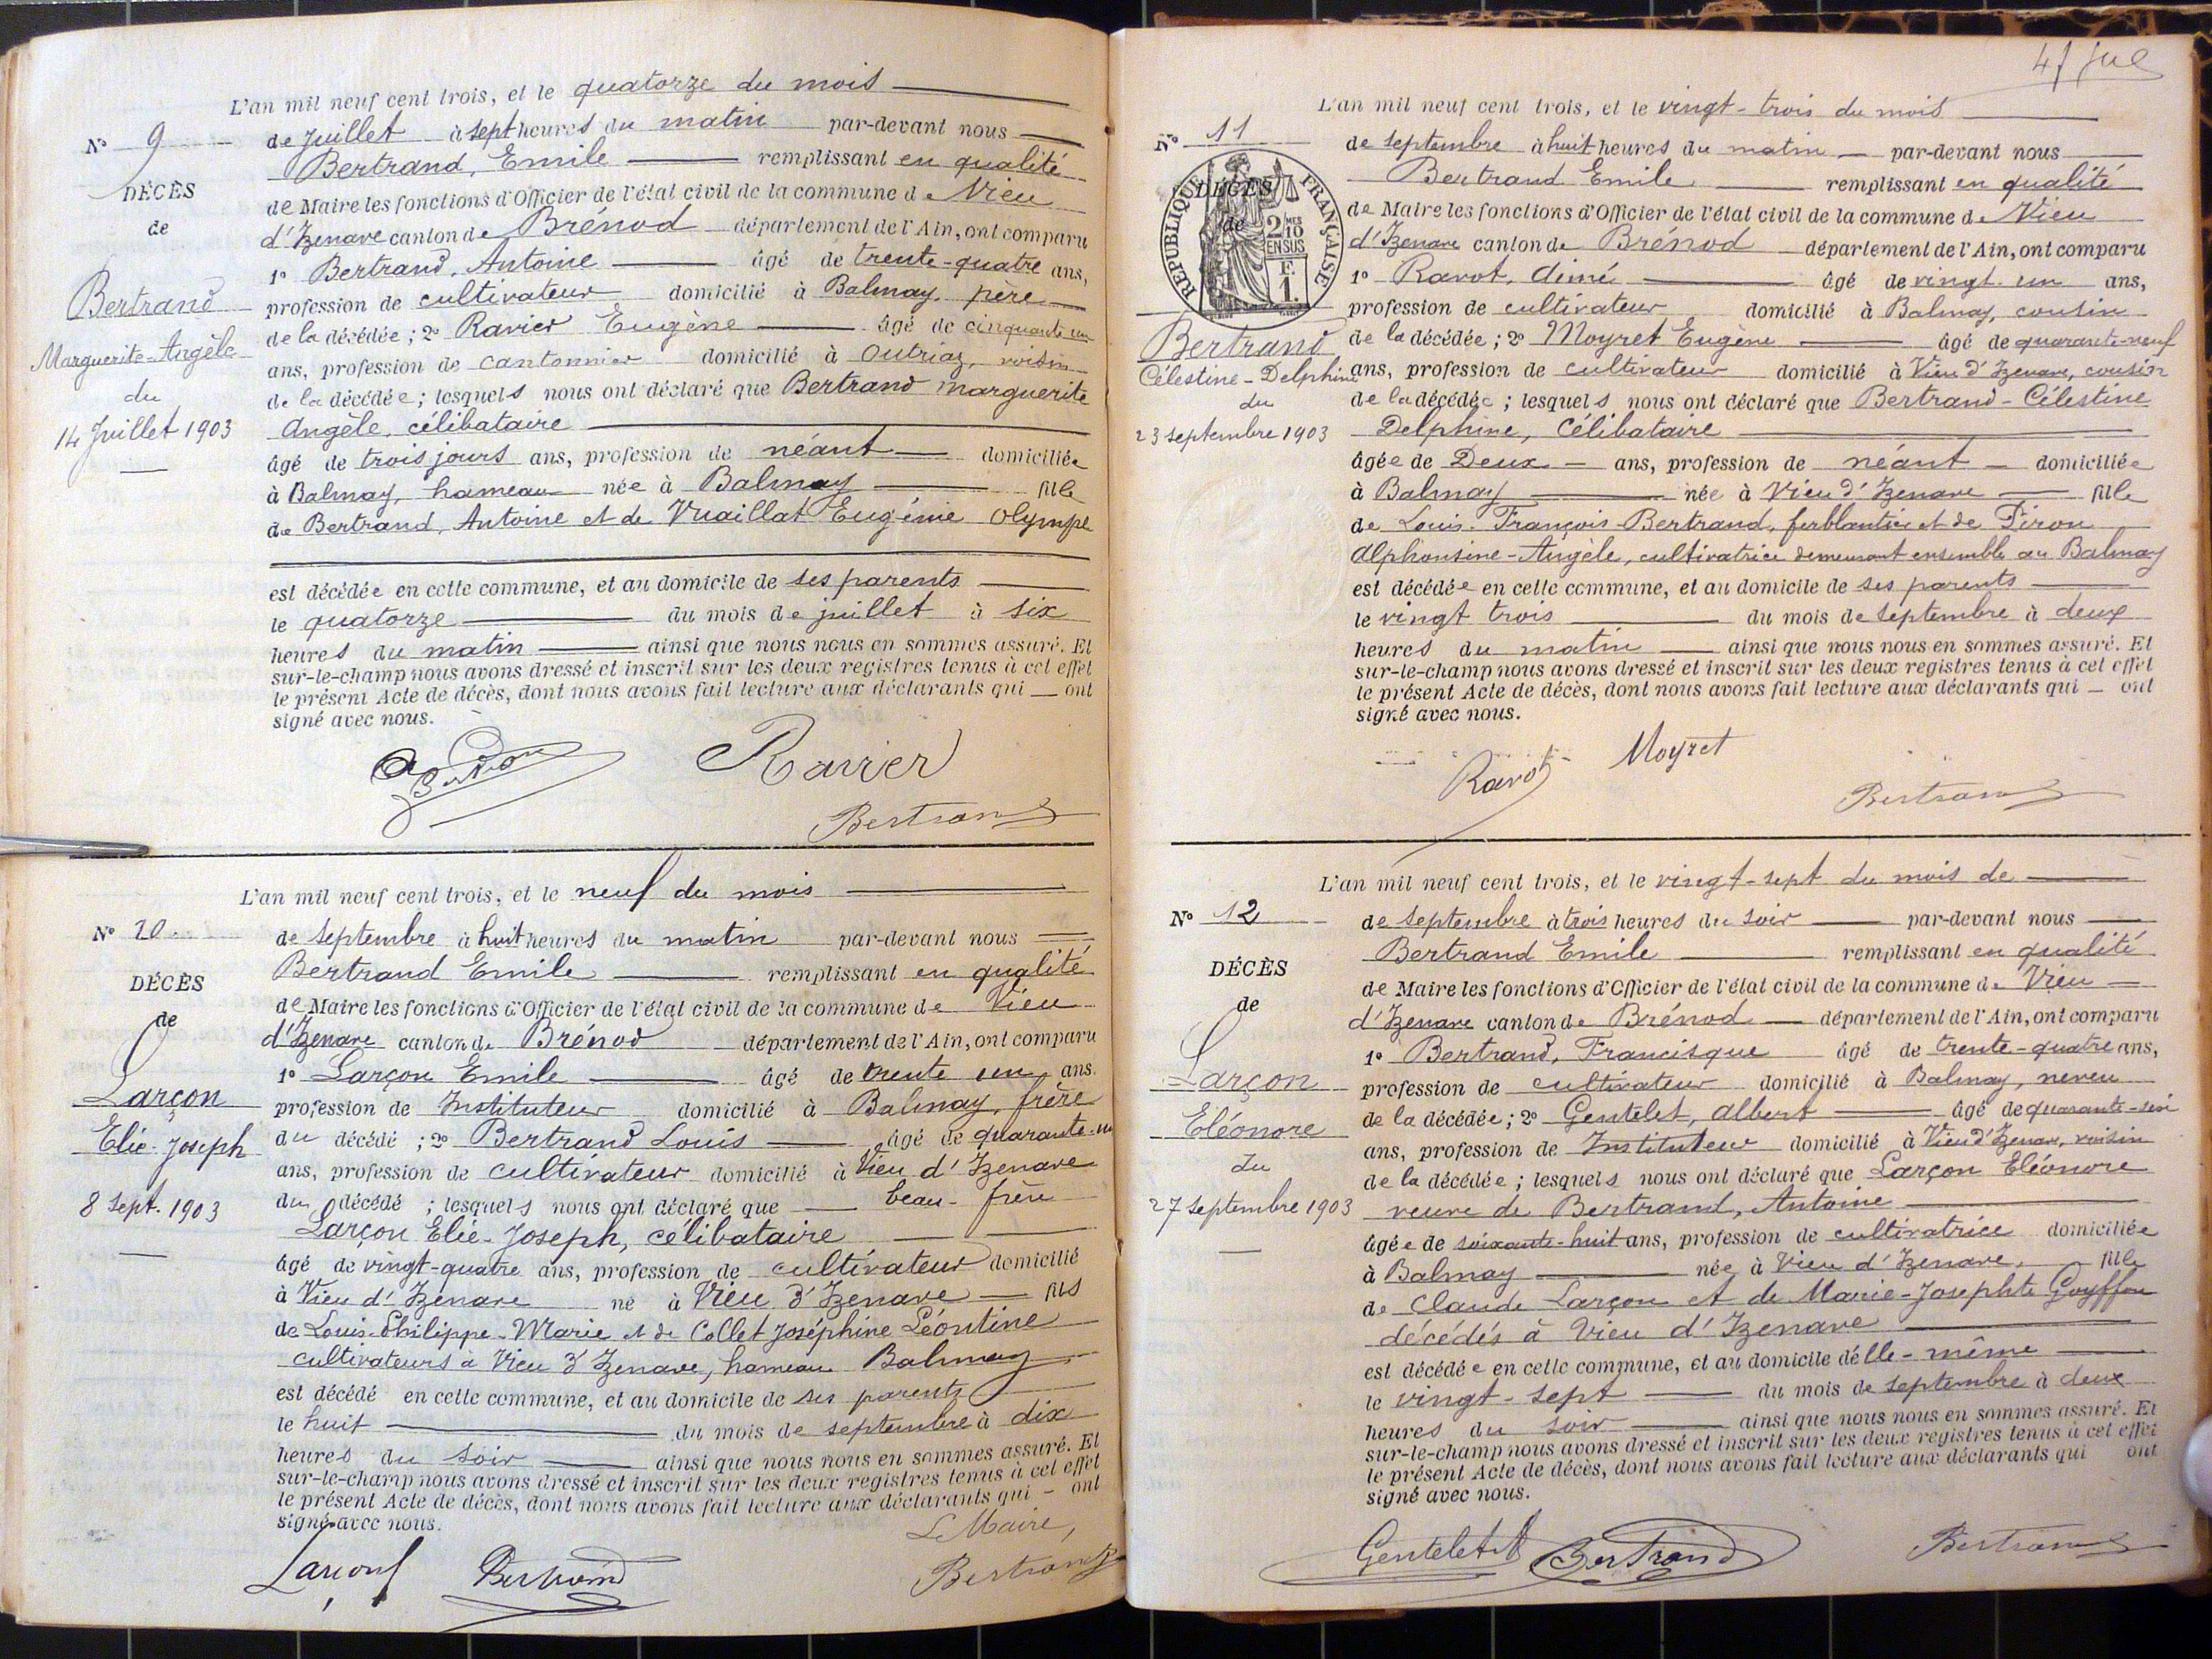 L'an mil neuf cent trois, et le quatorze du mois
N° 9
de Juillet à sept heures du matin par-devant nous
Bertrand, Emile remplissant en qualité
DÉCÈS
de Maire les fonctions d'Officier de l'état civil de la commune de Vieu
de
d'Izenave canton de Brénod département de l'Ain, ont comparu
1° Bertrand, Antoine âgé de trente-quatre ans,
Bertrand
profession de cultivateur domicilié à Balmay, père
de la décédée; 2° Ravier Eugène âgé de cinquante un
Marguerite-Angèle
ans, profession de cantonnier domicilié à Outriaz, voisin
du
de la décédée; lesquels nous ont déclaré que Bertrand Marguerite
14 Juillet 1903
Angèle, célibataire
âgé de trois jours ans, profession de néant domiciliée
à Balmay, hameau née à Balmay fille
de Bertrand, Antoine et de Vuaillat Eugénie Olympe
est décédée en cette commune, et au domicile de ses parents
le quatorze du mois de juillet à six
heures du matin ainsi que nous nous en sommes assuré. Et
sur-le-champ nous avons dressé et inscrit sur les deux registres tenus à cet effet
le présent Acte de décès, dont nous avons fait lecture aux déclarants qui ont
signé avec nous.
Ravier
Bertrand
L'an mil neuf cent trois, et le neuf du mois
N° 10
de Septembre à huit heures du matin par-devant nous
Bertrand Emile remplissant en qualité
DÉCÈS
de Maire les fonctions d'Officier de l'état civil de la commune de Vieu
de
d'Izenave canton de Brénod département de l'Ain, ont comparu
1° Larçon Emile âgé de trente un ans.
Larçon
profession de Instituteur domicilié à Balmay, frère
Elie-Joseph
du décédé; 2° Bertrand Louis âgé de quarante-un
ans, profession de cultivateur domicilié à Vieu d'Izenave
8 Sept. 1903
du décédé; lesquels nous ont déclaré que beau-frère
Larçon Elie-Joseph, célibataire
âgé de vingt-quatre ans, profession de cultivateur domicilié
à Vieu d'Izenave né à Vieu d'Izenave fils
de Louis-Philippe-Marie et de Collet Joséphine Léontine
cultivateurs à Vieu d'Izenave, hameau Balmay
est décédé en cette commune, et au domicile de ses parents
le huit du mois de septembre à dix
heures du soir ainsi que nous nous en sommes assuré. Et
sur-le-champ nous avons dressé et inscrit sur les deux registres tenus à cet effet
le présent Acte de décès, dont nous avons fait lecture aux déclarants qui - ont
signé avec nous.
Le Maire,
Larçon Bertrand Bertrand
41
L'an mil neuf cent trois, et le vingt-trois du mois
N° 11
de septembre à huit heures du matin par-devant nous
RÉPUBLIQUE FRANÇAISE
2/10 MES
EN SUS
F.
1.
Bertrand Emile remplissant en qualité
DÉCÈS
de Maire les fonctions d'Officier de l'état civil de la commune de Vieu
de
d'Izenave canton de Brénod département de l'Ain, ont comparu
1° Ravot, Aimé âgé de vingt-un ans,
profession de cultivateur domicilié à Balmay, cousin
Bertrand
de la décédée; 2° Moyret Eugène âgé de quarante-neuf
Célestine-Delphine
ans, profession de cultivateur domicilié à Vieu d'Izenave, cousin
du
de la décédée; lesquels nous ont déclaré que Bertrand-Célestine
23 septembre 1903
Delphine, Célibataire
âgée de Deux ans, profession de néant domiciliée
à Balmay née à Vieu d'Izenave fille
de Louis-François-Bertrand, ferblantier et de Piron
Alphonsine-Angèle, cultivatrice demeurant ensemble au Balmay
est décédée en cette commune, et au domicile de ses parents
le vingt trois du mois de Septembre à deux
heures du matin ainsi que nous nous en sommes assuré. Et
sur-le-champ nous avons dressé et inscrit sur les deux registres tenus à cet effet
le présent Acte de décès, dont nous avons fait lecture aux déclarants qui ont
signé avec nous.
Ravot Moyret
Bertrand
L'an mil neuf cent trois, et le vingt-sept du mois de
N° 12
de Septembre à trois heures du soir par-devant nous
Bertrand Emile remplissant en qualité
DÉCÈS
de Maire les fonctions d'Officier de l'état civil de la commune de Vieu
de
d'Izenave canton de Brénod département de l'Ain, ont comparu
1° Bertrand, Francisque âgé de trente-quatre ans,
Larçon
profession de cultivateur domicilié à Balmay, neveu
Eléonore
de la décédée; 2° Gentelet, Albert âgé de quarante-six
ans, profession de Instituteur domicilié à Vieu d'Izenave, voisin
du
de la décédée; lesquels nous ont déclaré que Larçon Eléonore
27 septembre 1903
veuve de Bertrand, Antoine
âgée de soixante-huit ans, profession de cultivatrice domiciliée
à Balmay née à Vieu d'Izenave, fille
de Claude Larçon et de Marie-Josephte Goyffon
décédés à Vieu d'Izenave
est décédée en cette commune, et au domicile d'elle-même
le vingt-sept du mois de septembre à deux
heures du soir ainsi que nous nous en sommes assuré. Et
sur-le-champ nous avons dressé et inscrit sur les deux registres tenus à cet effet
le présent Acte de décès, dont nous avons fait lecture aux déclarants qui ont
signé avec nous.
Gentelet A Bertrand Bertrand